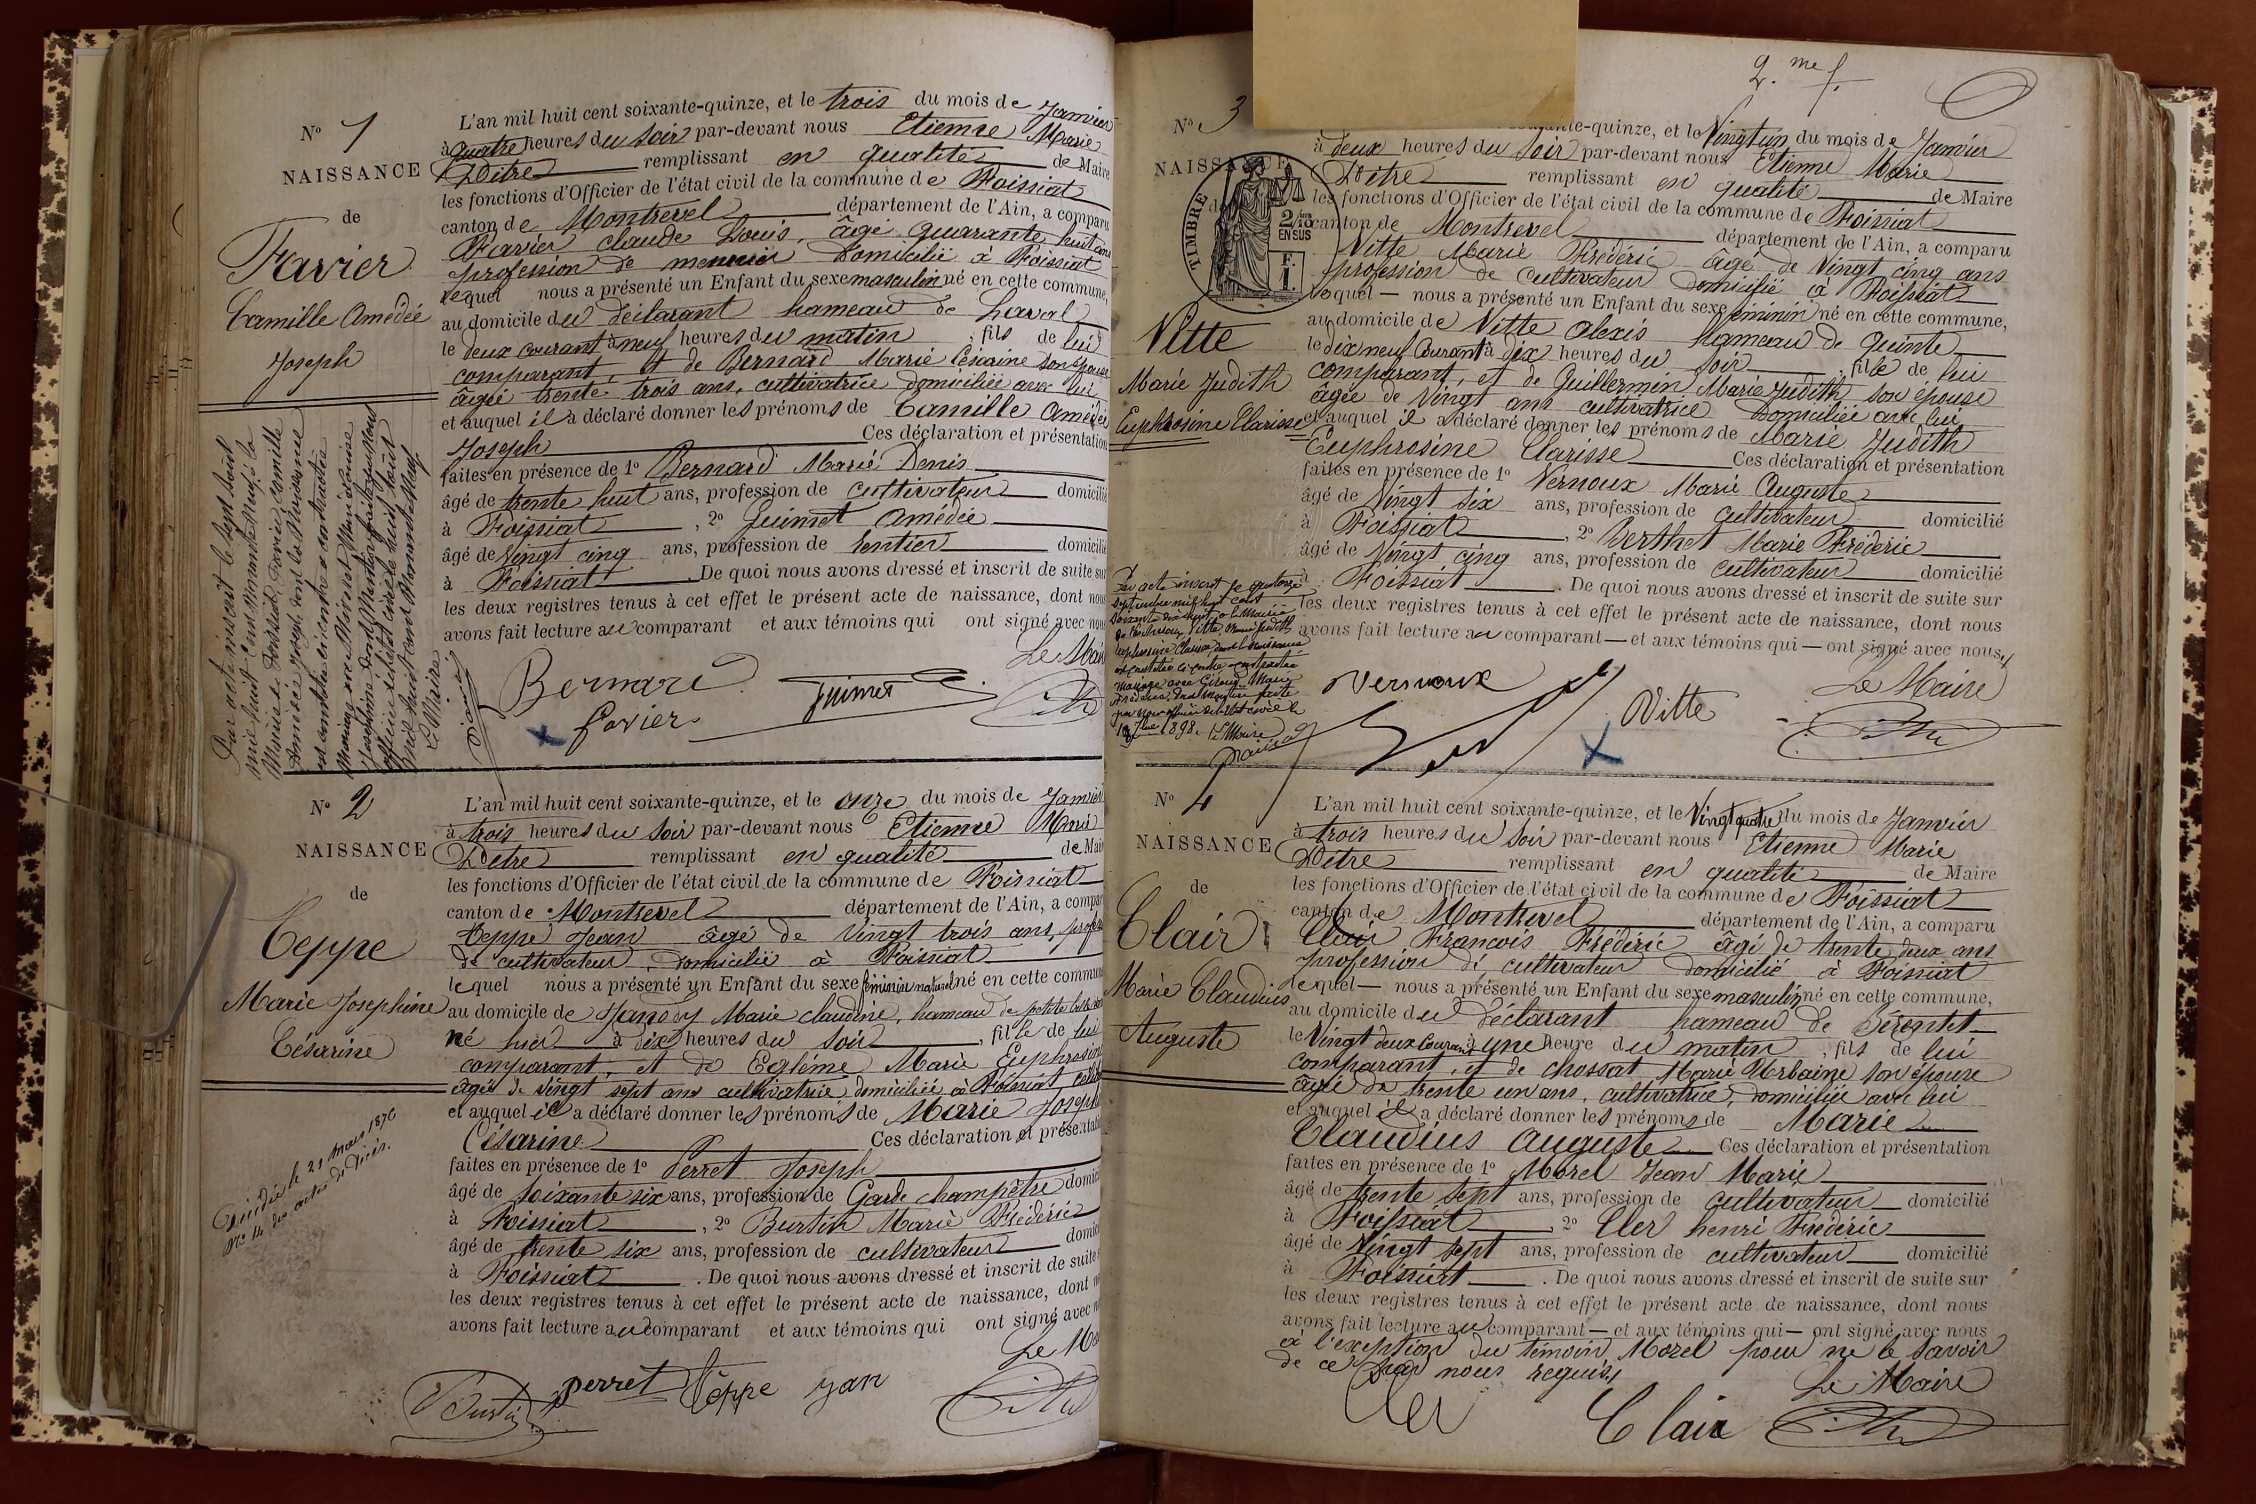 N° 1
NAISSANCE
de
Favier
Camille Amédée
Joseph
L'an mil huit cent soixante-quinze, et le trois du mois de Janvier
à quatre heures du soir par-devant nous Etienne Marie
remplissant en qualité de Maire
les fonctions d'Officier de l'état civil de la commune de Foissiat
canton de Montrevel département de l'Ain, a comparu
Favier Claude Louis, âgé quarante huit ans
profession de meunier domicilié à Foissiat
lequel nous a présenté un Enfant du sexe masculin né en cette commune,
au domicile du déclarant hameau de Laval
le deux courant à neuf heures du matin, fils de lui
comparant, et de Bernard Marie Césarine son épouse
âgée trente trois ans, cultivatrice domiciliée avec lui
et auquel il a déclaré donner les prénoms de Camille Amédée
Joseph Ces déclaration et présentation
faites en présence de 1° Bernard Marie Denis
âgé de trente huit ans, profession de cultivateur domicilié
à Foissiat, 2° Guimet Amédée
âgé de vingt cinq ans, profession de rentier domicilié
à Foissiat. De quoi nous avons dressé et inscrit de suite sur
les deux registres tenus à cet effet le présent acte de naissance, dont nous
avons fait lecture au comparant et aux témoins qui ont signé avec nous
Le Maire
Bernard
Favier
Guimet
Par acte inscrit le sept août
mil huit cent
officier de l'état civil le huit août
Le Maire
N° 2
NAISSANCE
de
Teppe
Marie Josephine
Césarine
Décédée le 21 mars 1876
N° 14 des actes de décès.
L'an mil huit cent soixante-quinze, et le onze du mois de Janvier
à trois heures du soir par-devant nous Etienne Marie
remplissant en qualité de Maire
les fonctions d'Officier de l'état civil de la commune de Foissiat
canton de Montrevel département de l'Ain, a comparu
Teppe Jean âgé de vingt trois ans, profession
de cultivateur, domicilié à Foissiat
lequel nous a présenté un Enfant du sexe féminin naturel né en cette commune
au domicile de Marie claudine, hameau de petite
né hier à dix heures du soir, fille de lui
comparant, et de Marie Euphrosine
âgée de vingt sept ans cultivatrice domiciliée à Foissiat
et auquel il a déclaré donner les prénoms de Marie Joseph
Césarine Ces déclaration et présentation
faites en présence de 1° Perret Joseph
âgé de soixante six ans, profession de Garde champêtre domicilié
à Foissiat, 2° Burtin Marie Frédéric
âgé de trente six ans, profession de cultivateur domicilié
à Foissiat. De quoi nous avons dressé et inscrit de suite
les deux registres tenus à cet effet le présent acte de naissance, dont
avons fait lecture au comparant et aux témoins qui ont signé avec
Le Maire
Burtin
perret
Teppe jan
2.me f.
N° 3
NAISSANCE
de
TIMBRE
2/10 EN SUS
F. 1.
Vitte
Marie Judith
Euphrosine Clarisse
soixante-quinze, et le vingt un du mois de Janvier
à deux heures du soir par-devant nous Etienne Marie
remplissant en qualité de Maire
les fonctions d'Officier de l'état civil de la commune de Foissiat
canton de Montrevel département de l'Ain, a comparu
Vitte Marie Frédéric âgé de vingt cinq ans
profession de cultivateur domicilié à Foissiat
lequel nous a présenté un Enfant du sexe féminin né en cette commune,
au domicile de Vitte alexis hameau de quinte
le dix neuf courant à dix heures du soir, fille de lui
comparant, et de Guillermin Marie Judith son épouse
âgée de vingt ans cultivatrice domiciliée avec lui
et auquel il a déclaré donner les prénoms de Marie Judith
Euphrosine Clarisse Ces déclaration et présentation
faites en présence de 1° Vernoux Marie Auguste
âgé de vingt six ans, profession de cultivateur domicilié
à Foissiat, 2° Berthet Marie Frédéric
âgé de vingt cinq ans, profession de cultivateur domicilié
à Foissiat. De quoi nous avons dressé et inscrit de suite sur
les deux registres tenus à cet effet le présent acte de naissance, dont nous
avons fait lecture au comparant et aux témoins qui ont signé avec nous
Vernoux
Vitte
Le Maire
Par acte inscrit le quatorze
septembre mil huit cent
Vitte, Marie Judith
Euphrosine Clarisse dont la naissance
est constatée ci contre a contracté
mariage avec
1898. Le Maire
N° 4
NAISSANCE
de
Clair
Marie Claudius
Auguste
L'an mil huit cent soixante-quinze, et le vingt quatre du mois de Janvier
à trois heures du soir par-devant nous Etienne Marie
remplissant en qualité de Maire
les fonctions d'Officier de l'état civil de la commune de Foissiat
canton de Montrevel département de l'Ain, a comparu
Clair François Frédéric âgé de trente deux ans
profession de cultivateur domicilié à Foissiat
lequel nous a présenté un Enfant du sexe masculin né en cette commune,
au domicile du déclarant hameau de
le vingt deux courant à une heure du matin, fils de lui
comparant, et de chossat Marie Urbaine son épouse
âgée de trente un ans, cultivatrice, domiciliée avec lui
et auquel il a déclaré donner les prénoms de Marie
Claudius Auguste Ces déclaration et présentation
faites en présence de 1° Morel Jean Marie
âgé de trente sept ans, profession de cultivateur domicilié
à Foissiat, 2° Cler henri Frédéric
âgé de vingt sept ans, profession de cultivateur domicilié
à Foissiat. De quoi nous avons dressé et inscrit de suite sur
les deux registres tenus à cet effet le présent acte de naissance, dont nous
avons fait lecture au comparant et aux témoins qui ont signé avec nous
à l'exception du témoin Morel pour ne le savoir
de ce par nous requis
Le Maire
Cler
Clair